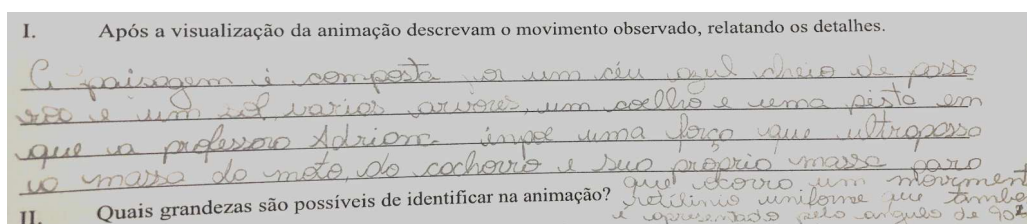 I. Após a visualização da animação descrevam o movimento observado, relatando os detalhes.
A paisagem é composta por um céu azul cheio de passa
ros e um sol varias arvores, um coelho e uma pista em
que a professora Adriana impoe uma força que ultrapassa
a massa da moto, do cachorro e sua própria massa para
que ocorra um moviment
II. Quais grandezas são possíveis de identificar na animação?
retilinio uniforme que també
é apresentado pelo angulo de 90°